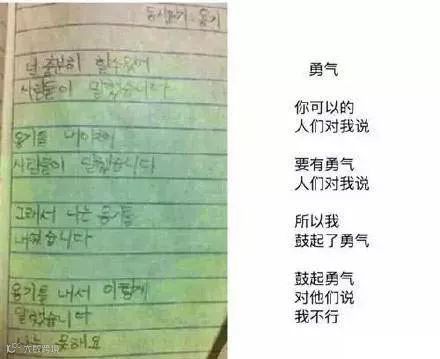 용기
넌 충분히 할수있어
사람들이 말했습니다
용기를 내야해
사람들이 말했습니다
그래서 나는 용기를
내었습니다
용기를 내서 이렇게
말했습니다
나는 못해요
大数跨境
勇气
你可以的
人们对我说
要有勇气
人们对我说
所以我
鼓起了勇气
鼓起勇气
对他们说
我不行